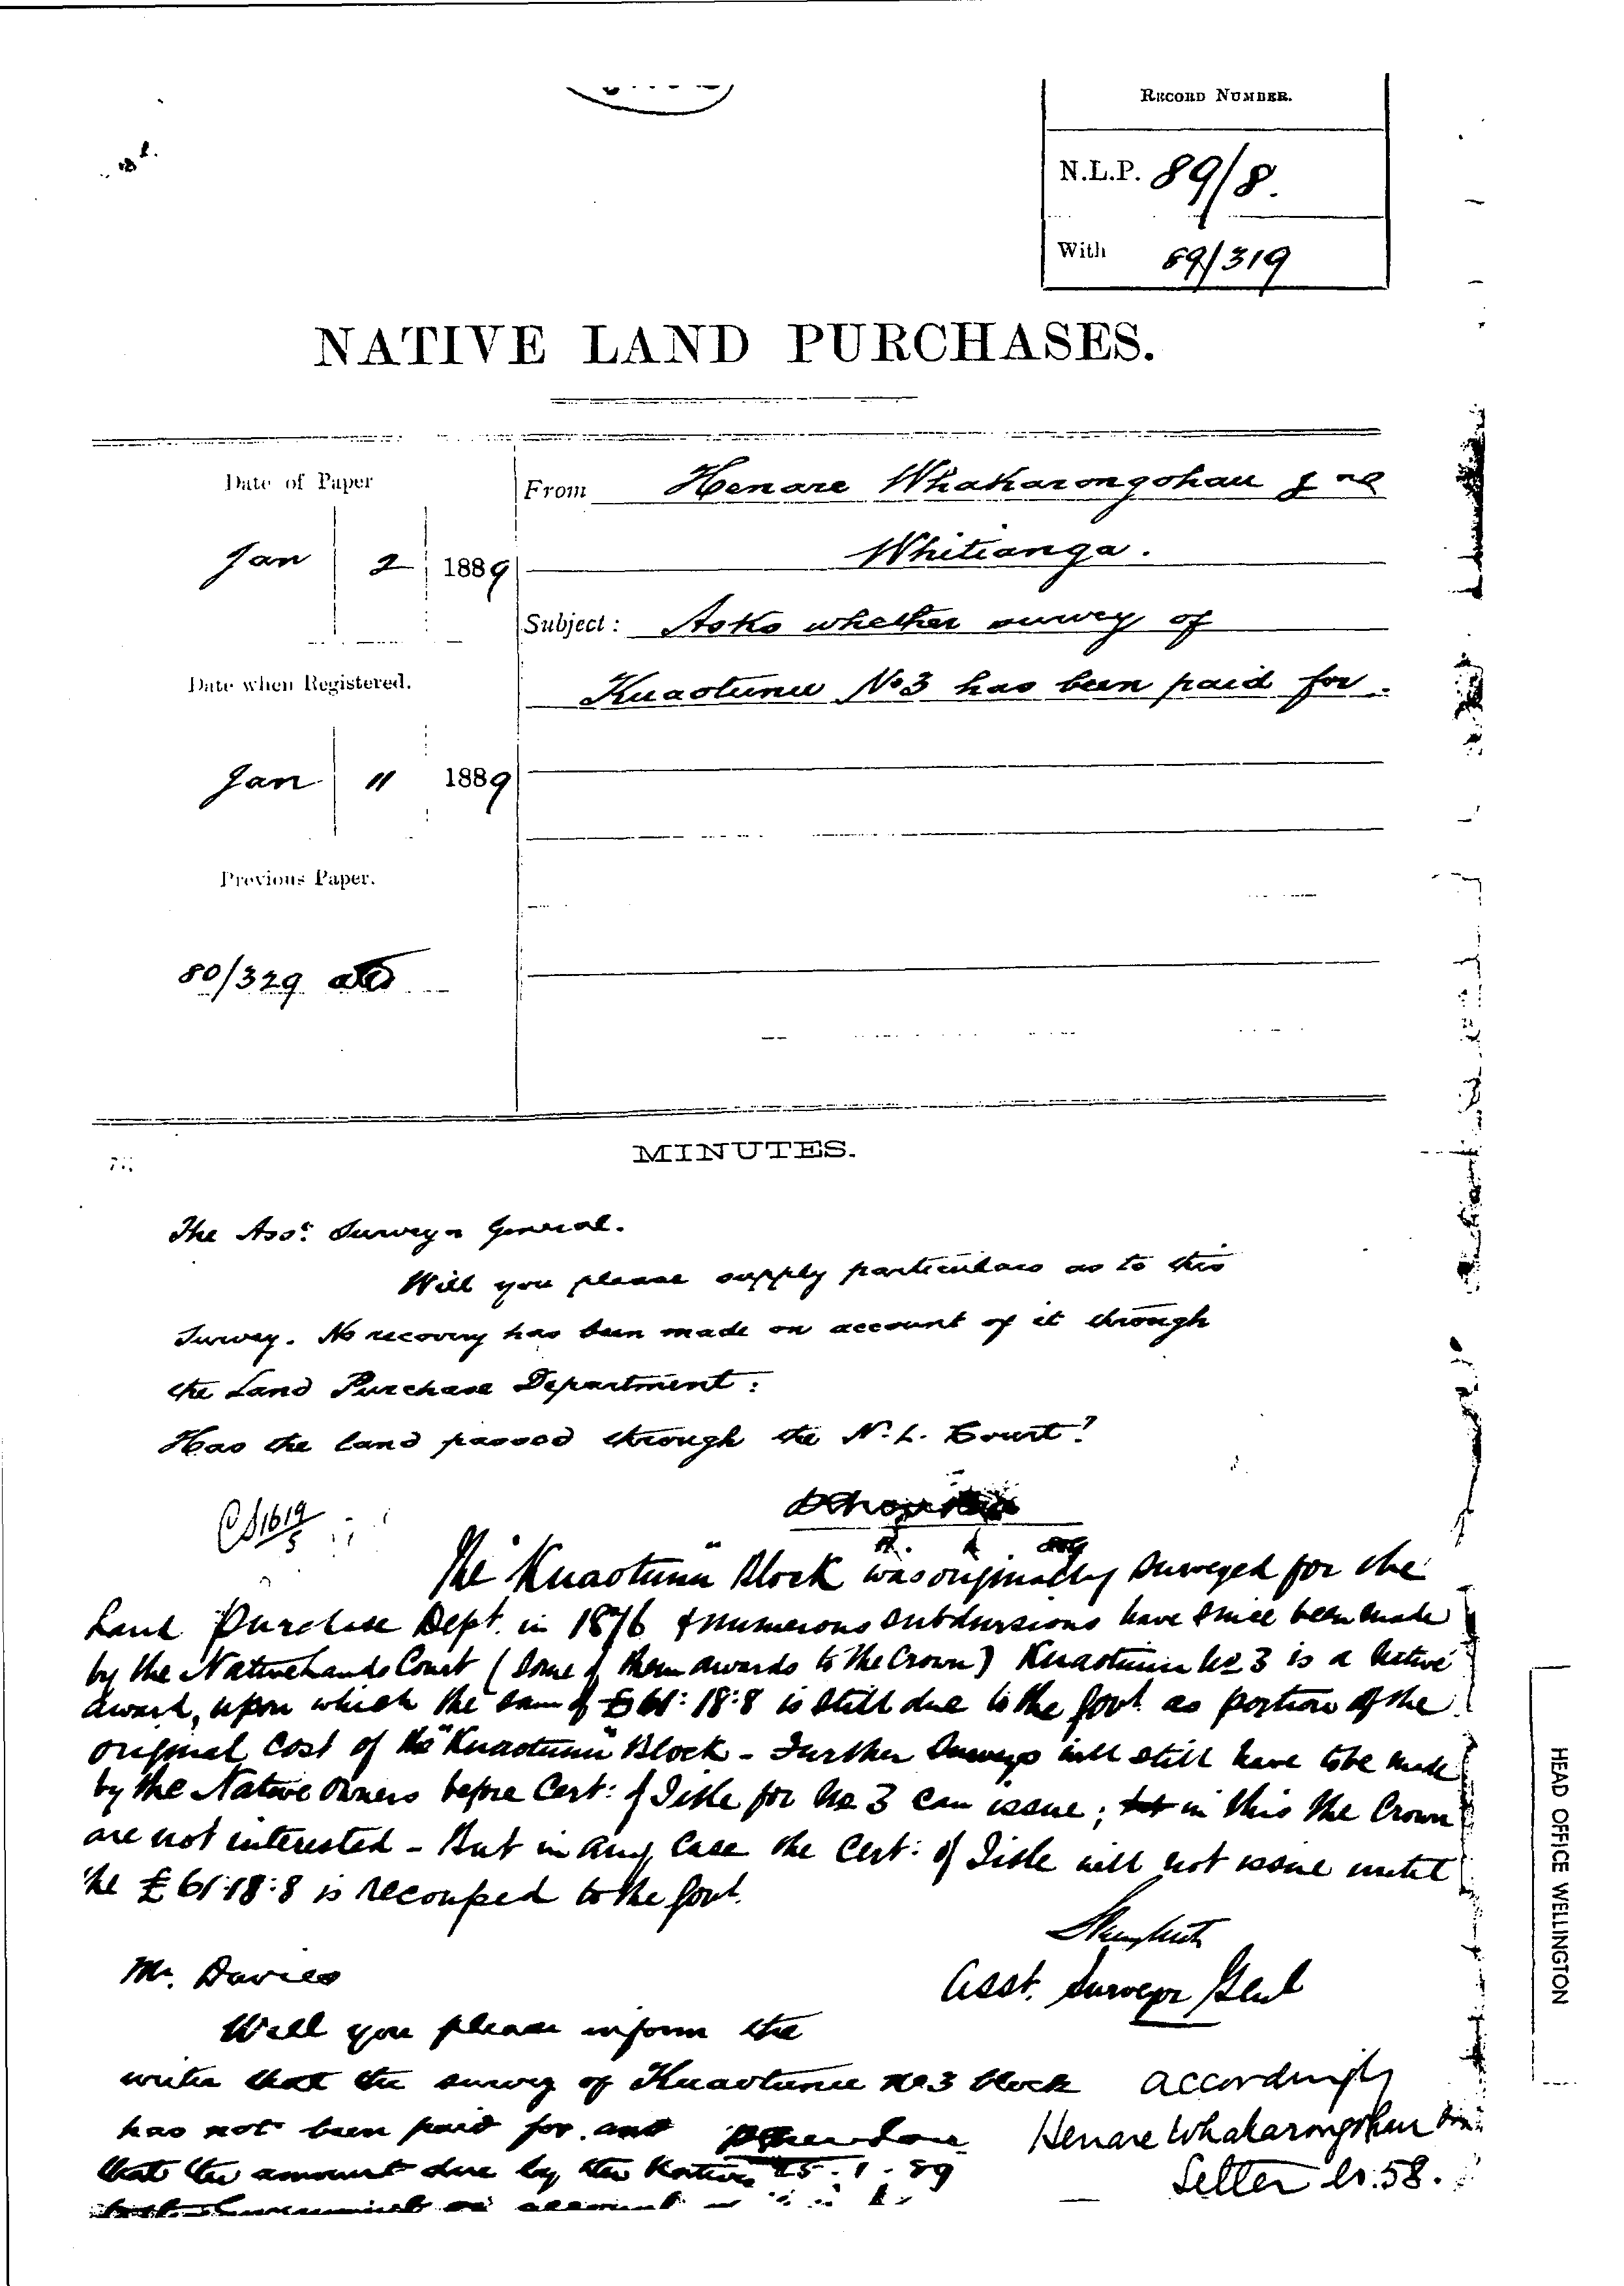 RECORD NUMBER.
N.L.P. 89/8.
With 89/319
NATIVE LAND PURCHASES.
Date of Paper
Jan 2 1889
From Henare Whakarongohau
Whitianga.
Subject: Asks whether survey of
Kuaotunu No 3 has been paid for.
Date when Registered.
Jan 11 1889
Previous Paper.
80/329
MINUTES.
The Asst. Surveyor General.
Will you please supply particulars as to this
Survey. No recovery has been made on account of it through
the Land Purchase Department:
Has the land passed through the N. L. Court?
The "Kuaotunu" Block was originally surveyed for the
Land Purchase Dept. in 1876 & numerous subdivisions have since been made
by the Native Lands Court (some of them awards to the Crown) Kuaotunu No 3 is a Native
award, upon which the sum of £61:18:8 is still due to the Govt. as portion of the
original cost of the "Kuaotunu" Block - Further Surveys will still have to be made
by the Native Owners before Cert: of Title for No 3 can issue; but in this the Crown
are not interested - But in any case the Cert: of Title will not issue until
the £61:18:8 is recouped to the Govt.
Asst. Surveyor Genl
Mr. Davies
Will you please inform the
writer that the survey of Kuaotunu No 3 block
has not been paid for and
that the amount due by the Natives
25.1.89
accordingly
Henare Whakarongohau
Letter No. 58.
HEAD OFFICE WELLINGTON